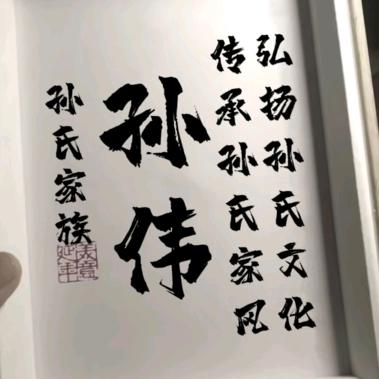 弘扬孙氏文化
传承孙氏家风
孙伟
孙氏家族